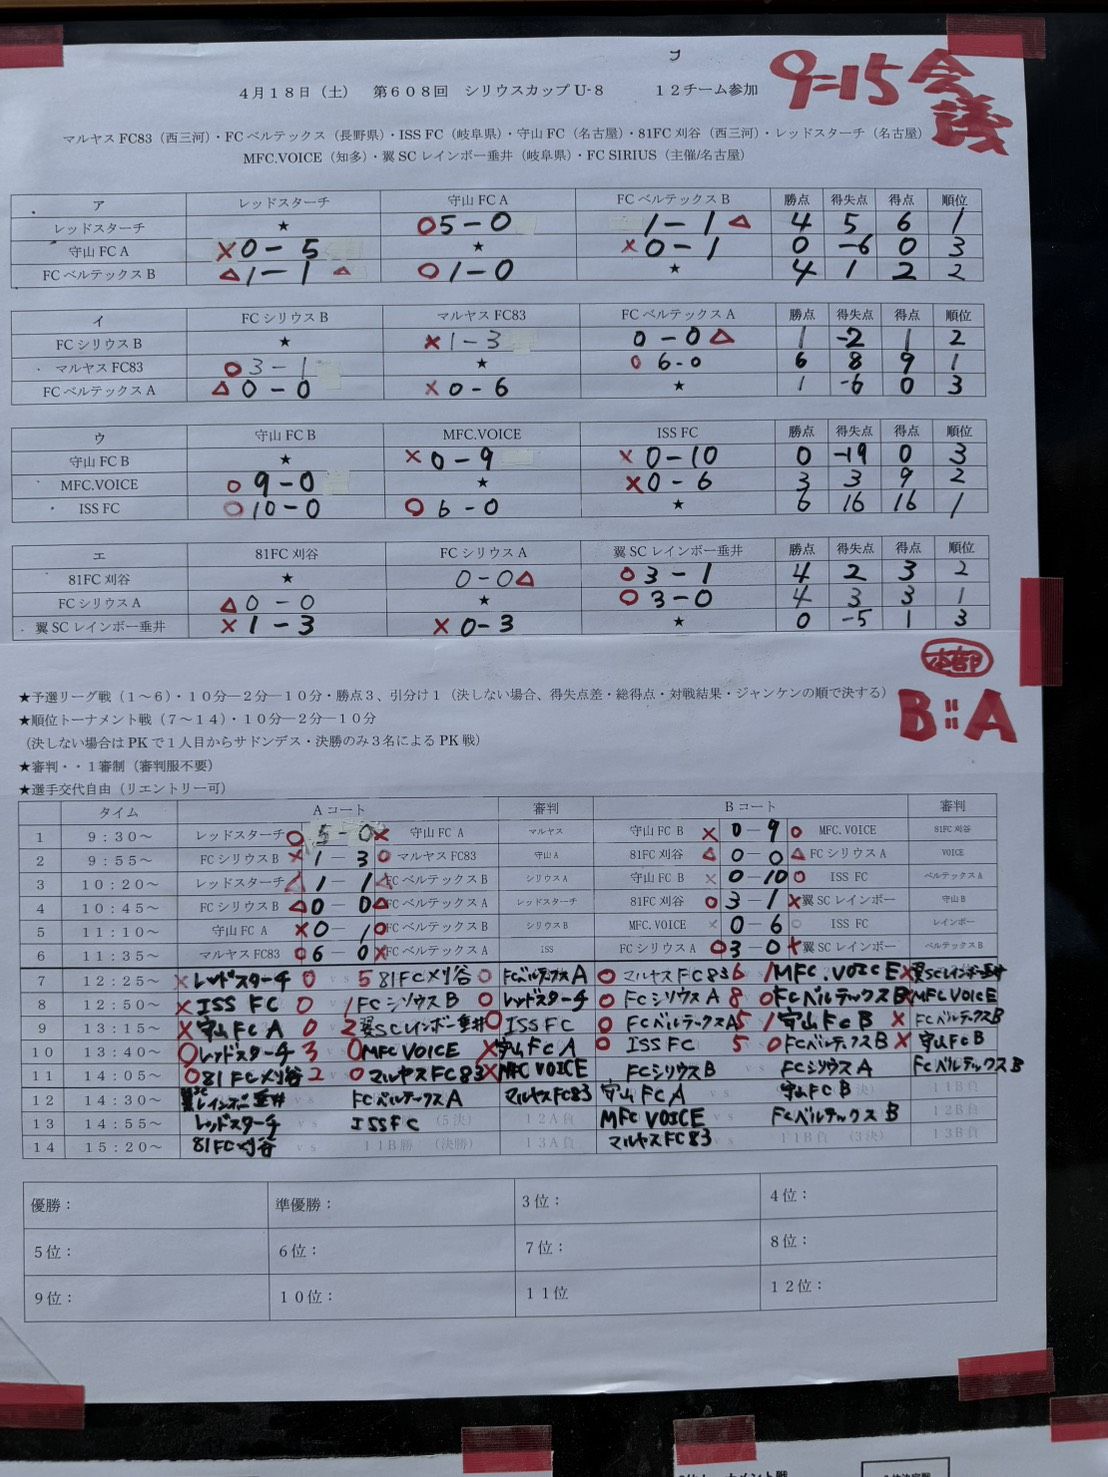 フ
9=15 会議
4月18日（土） 第608回 シリウスカップU-8 12チーム参加
マルヤスFC83（西三河）・FCベルテックス（長野県）・ISS FC（岐阜県）・守山FC（名古屋）・81FC刈谷（西三河）・レッドスターチ（名古屋）
MFC.VOICE（知多）・翼SCレインボー垂井（岐阜県）・FC SIRIUS（主催/名古屋）
ア レッドスターチ 守山FC A FCベルテックスB 勝点 得失点 得点 順位
レッドスターチ ★ ○5-0 1-1△ 4 5 6 1
守山FC A ×0-5 ★ ×0-1 0 -6 0 3
FCベルテックスB △1-1△ ○1-0 ★ 4 1 2 2
イ FCシリウスB マルヤスFC83 FCベルテックスA 勝点 得失点 得点 順位
FCシリウスB ★ ×1-3 0-0△ 1 -2 1 2
マルヤスFC83 ○3-1 ★ ○6-0 6 8 9 1
FCベルテックスA △0-0 ×0-6 ★ 1 -6 0 3
ウ 守山FC B MFC.VOICE ISS FC 勝点 得失点 得点 順位
守山FC B ★ ×0-9 ×0-10 0 -19 0 3
MFC.VOICE ○9-0 ★ ×0-6 3 3 9 2
ISS FC ○10-0 ○6-0 ★ 6 16 16 1
エ 81FC刈谷 FCシリウスA 翼SCレインボー垂井 勝点 得失点 得点 順位
81FC刈谷 ★ 0-0△ ○3-1 4 2 3 2
FCシリウスA △0-0 ★ ○3-0 4 3 3 1
翼SCレインボー垂井 ×1-3 ×0-3 ★ 0 -5 1 3
本部
B=A
★予選リーグ戦（1～6）・10分―2分―10分・勝点3、引分け1（決しない場合、得失点差・総得点・対戦結果・ジャンケンの順で決する）
★順位トーナメント戦（7～14）・10分―2分―10分
（決しない場合はPKで1人目からサドンデス・決勝のみ3名によるPK戦）
★審判・・1審制（審判服不要）
★選手交代自由（リエントリー可）
タイム Aコート 審判 Bコート 審判
1 9：30～ レッドスターチ ○ 5-0 × 守山FC A マルヤス 守山FC B × 0-9 ○ MFC.VOICE 81FC刈谷
2 9：55～ FCシリウスB × 1-3 ○ マルヤスFC83 守山A 81FC刈谷 △ 0-0 △ FCシリウスA VOICE
3 10：20～ レッドスターチ △ 1-1 △ FCベルテックスB シリウスA 守山FC B × 0-10 ○ ISS FC ベルテックスA
4 10：45～ FCシリウスB △ 0-0 △ FCベルテックスA レッドスターチ 81FC刈谷 ○ 3-1 × 翼SCレインボー 守山B
5 11：10～ 守山FC A × 0-1 ○ FCベルテックスB シリウスB MFC.VOICE × 0-6 ○ ISS FC レインボー
6 11：35～ マルヤスFC83 ○ 6-0 × FCベルテックスA ISS FCシリウスA ○ 3-0 × 翼SCレインボー ベルテックスB
7 12：25～ × レッドスターチ 0 5 81FC刈谷 ○ FCベルテックスA ○ マルヤスFC83 6 1 MFC.VOICE × 翼SCレインボー垂井
8 12：50～ × ISS FC 0 1 FCシリウスB ○ レッドスターチ ○ FCシリウスA 8 0 FCベルテックスB × MFC VOICE
9 13：15～ × 守山FC A 0 2 翼SCレインボー垂井 ○ ISS FC ○ FCベルテックスA 5 1 守山FC B × FCベルテックスB
10 13：40～ ○ レッドスターチ 3 0 MFC VOICE × 守山FC A ○ ISS FC 5 0 FCベルテックスB × 守山FC B
11 14：05～ ○ 81FC刈谷 2 0 マルヤスFC83 × MFC VOICE FCシリウスB FCシリウスA FCベルテックスB
12 14：30～ 翼SCレインボー垂井 vs FCベルテックスA マルヤスFC83 守山FC A vs 守山FC B 11B負
13 14：55～ レッドスターチ vs ISSFC （5決） 12A負 MFC VOICE vs FCベルテックスB 12B負
14 15：20～ 81FC刈谷 vs 11B勝 （決勝） 13A負 マルヤスFC83 vs 11B負 （3決） 13B負
優勝： 準優勝： 3位： 4位：
5位： 6位： 7位： 8位：
9位： 10位： 11位 12位：